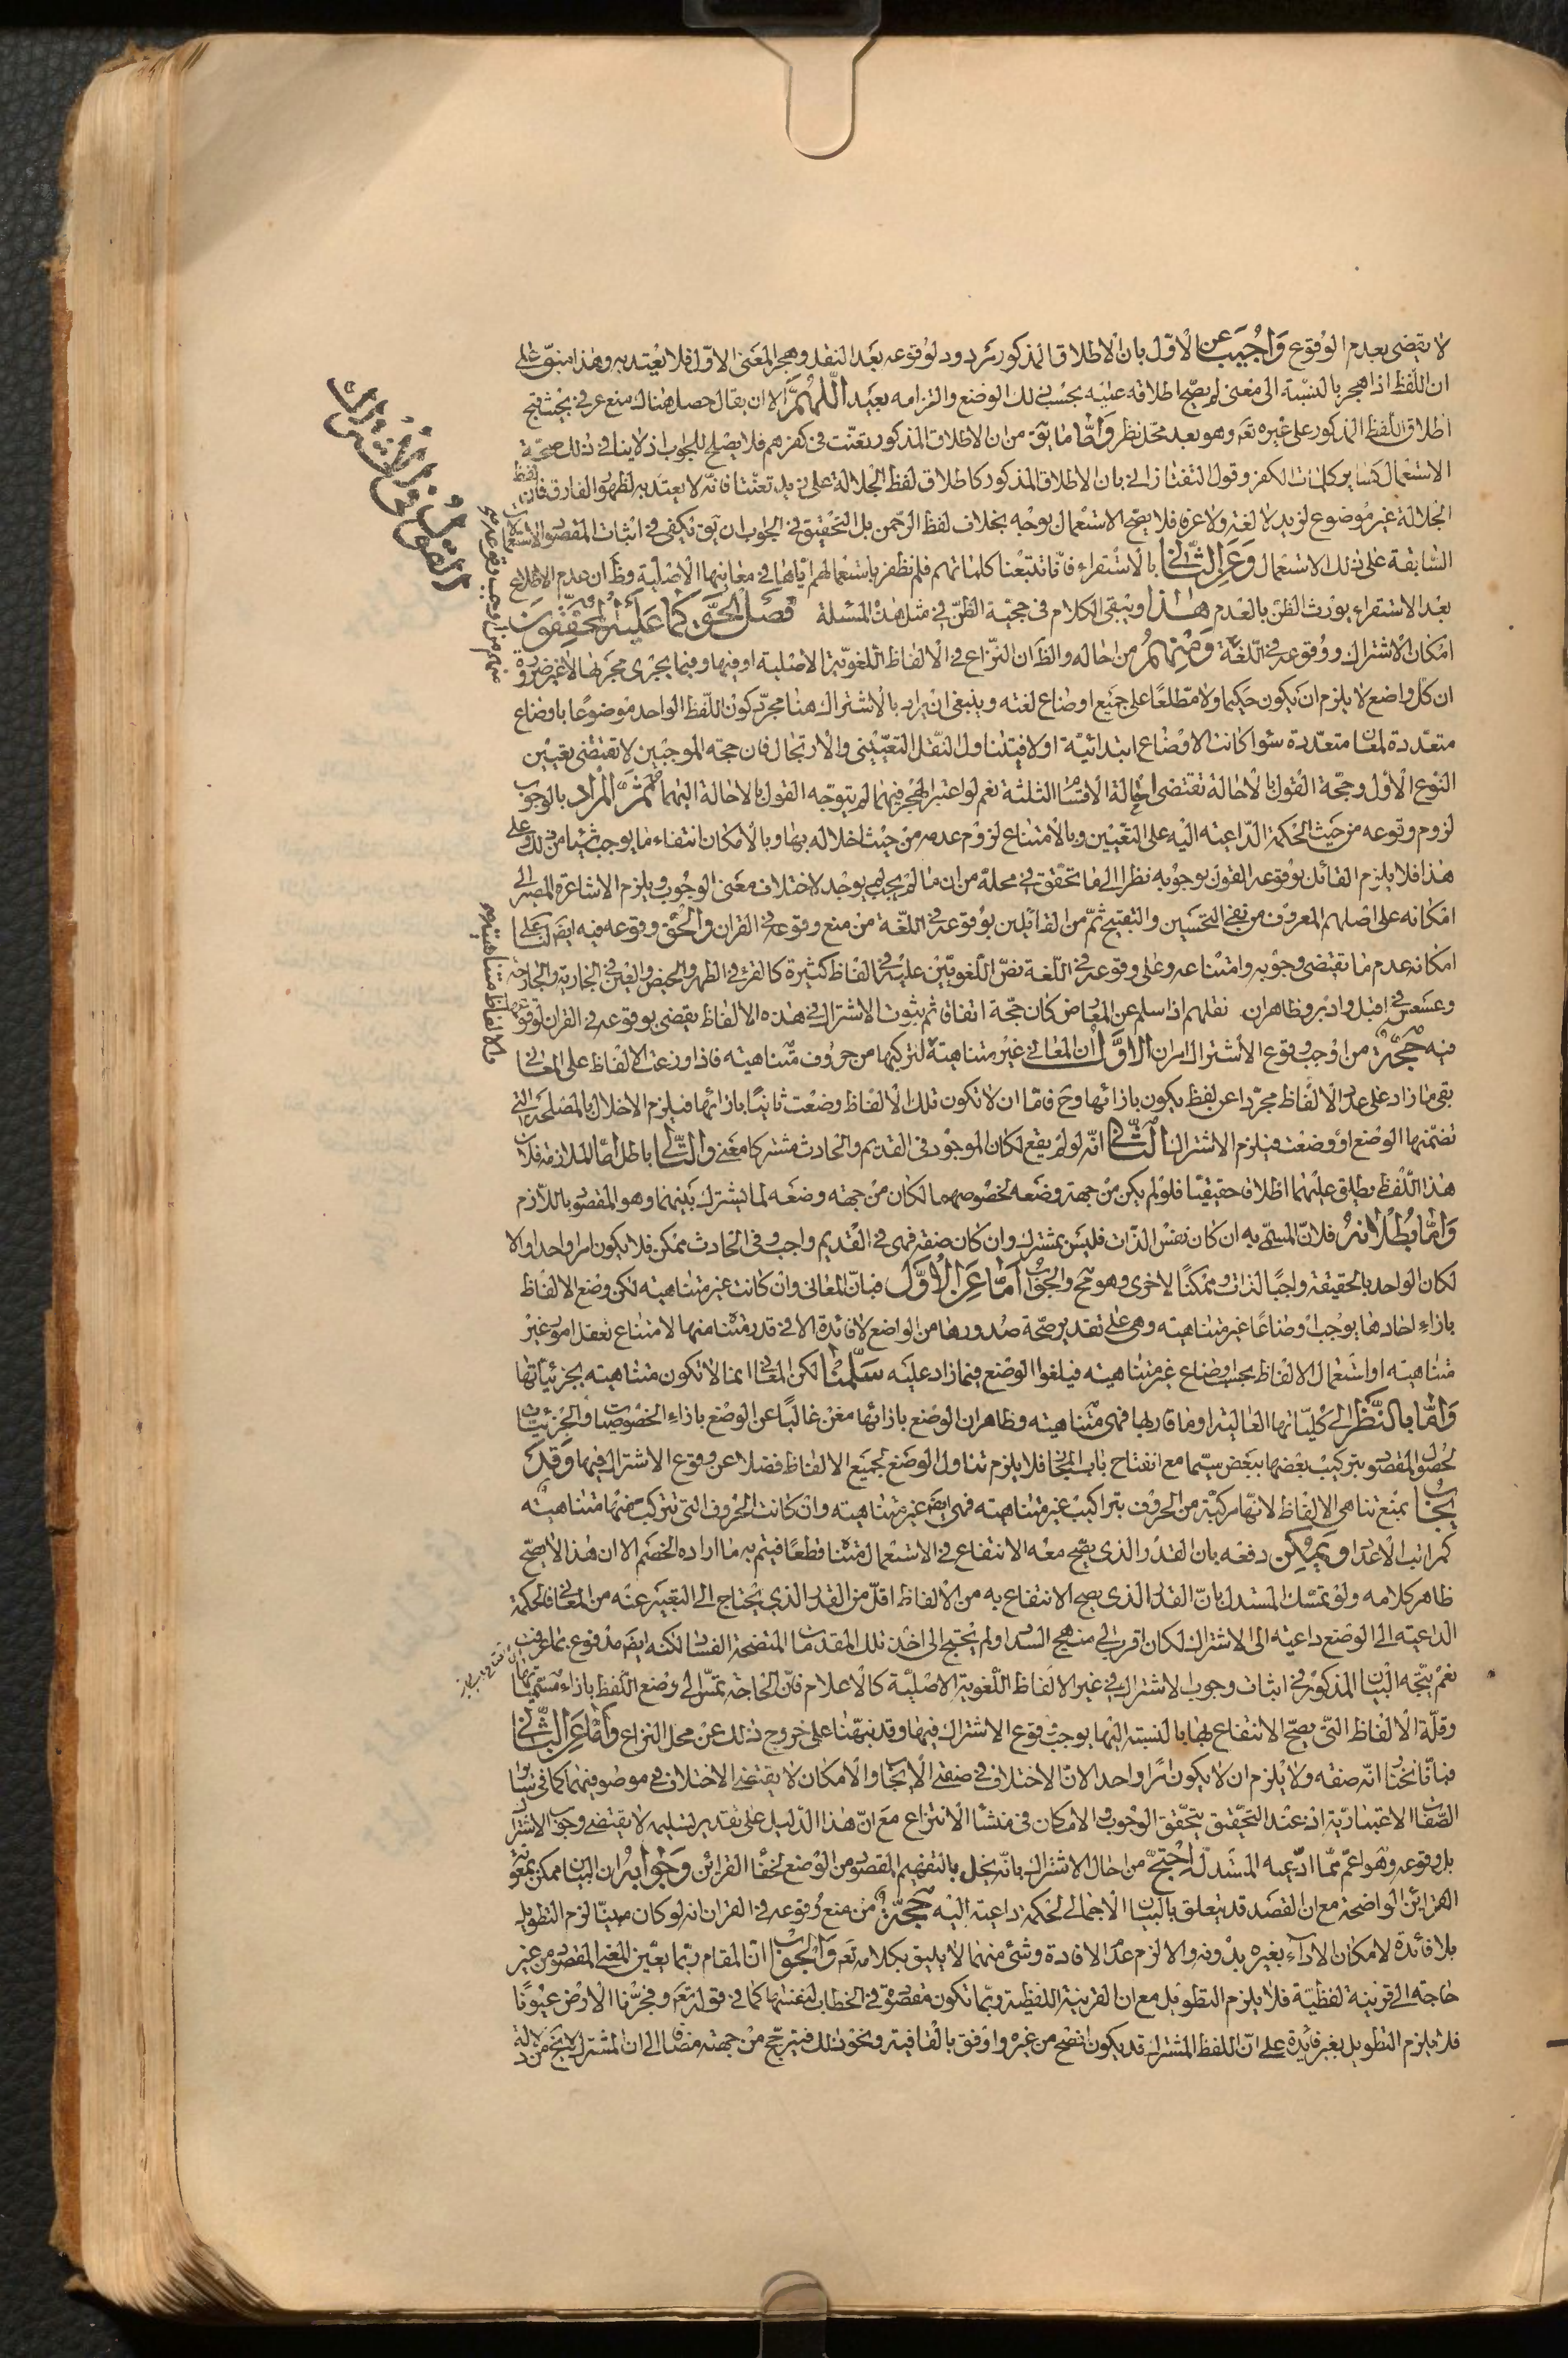 لا يقتضى بعدم الوقوع وَاُجيبَ عن الاوّل بان الاطلاق المذكور مردود لوقوعه بعد النقد وهجر المعنى الاوّل فلا يعتد به وهذا مبنىّ على
ان اللفظ اذا هجر بالنسبة الى معنى لم يصحّ اطلاقه عليه بحسب ذلك الوضع والتزامه بعيد اللّهمَّ الا ان يقال حصل هناك منع عرفى بحيث قبح
اطلاق اللفظ المذكور على غيره تعَ وهو بعد محلّ نظر وَامّا ما يقَ من ان الاطلاق المذكور تعنّت فى كفرهم فلا يصلح للجواب اذ لا ينافى ذلك صحّة
الاستعمال كساير كلمات الكفر وقول التفتازانى بان الاطلاق المذكور كاطلاق لفظ الجلالة على زيد تعنّتا فانّه لا يعتد به لظهور الفارق فان لفظ
الجلالة غير موضوع لزيد لا لغة ولا عرفا فلا يصحّ الاستعمال بوجه بخلاف لفظ الرّحمن بل التحقيق فى الجواب ان يقَ يكفى فى اثبات المقصود الاستعمالات
السّابقة على ذلك الاستعمال وَعَن الثّانى بالاستقراء فانّا تتبّعنا كلماتهم فلم نظفر باستعمالهم ايّاها فى معانيها الاصليّة وظَ ان عدم الاطلاع
بعد الاستقراء يورث الظنّ بالعدم هذا ويبقى الكلام فى حجّية الظنّ فى مثل هذه المسئلة فصل الحقّ كما عليه المحقّقون
امكان الاشتراك ووقوعه فى اللّغة وَمنهم من احاله والظَ ان النّزاع فى الالفاظ اللّغويّة الاصليّة او فيها وفيما يجرى مجريها لا غير ضرورة
ان كل واضع لا يلزم ان يكون حكيما ولا مطّلعًا على جميع اوضاع لغته وينبغى ان يراد بالاشتراك هنا مجرّد كون اللّفظ الواحد موضوعًا باوضاع
متعدّدة لمعان متعدّدة سواء كانت الاوضاع ابتدائيّة او لا فيتناول النّقل التعيّنى والارتجال فان حجّة الموجبين لا تقتضى تعيين
النوع الاوّل وحجّة القول بالاحالة تقتضى احالة الاقسام الثلثة نعم لو اعتبر الهجر فيهما لم يتوجّه القول بالاحالة اليهما ثمّ المراد بالوجوب
لزوم وقوعه من حيث الحكمة الدّاعية اليه على التعيين وبالامتناع لزوم عدمه من حيث اخلاله بها وبالامكان انتفاء ما يوجب شيئا من ذلك وعلى
هذا فلا يلزم القائل بوقوعه القول بوجوبه نظرا الى ما تحقّق فى محلّه من ان ما لم يجب لم يوجد لاختلاف معنى الوجوب ويلزم الاشاعرة المصير الى
امكانه على اصلهم المعروف من نفى التحسين والتقبيح ثمّ من القائلين بوقوعه فى اللّغة من منع وقوعه فى القران والحقّ وقوعه فيه ايضَ لنا على
امكانه عدم ما تقتضى وجوبه وامتناعه وعلى وقوعه فى اللّغة نصّ اللّغويّين عليه فى الفاظ كثيرة كالقرء فى الطهر والحيض والعين فى الجارية والجارحة
وعسعس فى اقبل وادبر وظاهر ان نقلهم اذا سلم عن المعارض كان حجّة اتفاقا ثم ثبوت الاشتراك فى هذه الالفاظ يقتضى بوقوعه فى القران لوقوعها
فيه حجّة من اوجب وقوع الاشتراك امران الاوّل ان المعانى غير متناهية والالفاظ متناهية لتركّبها من حروف متناهية فاذا وزعت الالفاظ على المعانى
بقى ما زاد على عدد الالفاظ مجرّدا عن لفظ يكون بازائها وحَ فامّا ان لا تكون تلك الالفاظ وضعت ثانيًا بازائها فيلزم الاخلال بالمصلحة التى
تضمّنها الوضع او وضعت فيلزم الاشتراك الثّانى انّه لو لم يقع لكان الموجود فى القديم والحادث مشتركا معنى والتّالى باطل امّا الملازمة فلان
هذا اللّفظ يطلق عليهما اطلاقا حقيقيّا فلو لم يكن من جهة وضعه لخصوصهما لكان من جهة وضعه لما يشترك بينهما وهو المقصود باللّازم
وَامّا بطلانه فلانّ المسمّى به ان كان نفس الذّات فليس بمشترك وان كان صفة فهى فى القديم واجب وفى الحادث ممكن فلا يكون امرا واحدا والا
لكان الواحد بالحقيقة واجبًا لذات وممكنًا لاخرى وهو مَح والجواب امّا عَن الاوّل فبانّ المعانى وان كانت غير متناهية لكن وضع الالفاظ
بازاء احادها يوجب اوضاعًا غير متناهية وهى على تقدير صحّة صدورها من الواضع لا فائدة الا فى قدر متناه منها لامتناع تعقل امور غير
متناهية او استعمال الالفاظ بحسب اوضاع غير متناهية فيلغوا الوضع فيما زاد عليه سلّمنا لكن المعانى انما لا تكون متناهية بجزئيّاتها
وَامّا بالنّظر الى كليّاتها العالية او ما قاربها فهى متناهية وظاهر ان الوضع بازائها مغن غالبًا عن الوضع بازاء الخصوصيّات والجزئيّات
لحصول المقصود بتركيب بعضها ببعض سيّما مع انفتاح باب المجاز فلا يلزم تناول الوضع لجميع الالفاظ فضلا عن وقوع الاشتراك فيها وَقد
يجاب بمنع تناهى الالفاظ لانّها مركّبة من الحروف بتراكيب غير متناهية فهى ايضَ غير متناهية وان كانت الحروف التى تتركّب منها متناهية
كمراتب الاعداد ويمكن دفعه بان القدر الذى يصحّ معه الانتفاع فى الاستعمال متناه قطعًا فيتم به ما اراده الخصم الا ان هذا لا يصحّح
ظاهر كلامه ولو تمسّك المستدل بانّ القدر الذى يصح الانتفاع به من الالفاظ اقلّ من القدر الذى يحتاج الى التعبير عنه من المعانى فالحكمة
الداعية الى الوضع داعية الى الاشتراك لكان اقرب الى منهج السداد ولم يحتج الى اخذ تلك المقدمات المتضحة الفساد لكنه ايضَ مدفوع بما عرفت
نعم يتّجه البيان المذكور فى اثبات وجوب الاشتراك فى غير الالفاظ اللّغوية الاصليّة كالاعلام فانّ الحاجة تمسّ الى وضع اللّفظ بازاء مسمّياتها
وقلّة الالفاظ التى يصحّ الانتفاع بها بالنسبة اليها يوجب وقوع الاشتراك فيها وقد نبّهنا على خروج ذلك عن محل النزاع وَامّا عَن الثّانى
فبانّا نختار انّه صفة ولا يلزم ان لا يكون امرًا واحدا لانّ الاختلاف فى صفتى الايجاب والامكان لا يقتضى الاختلاف فى موصوفيهما كما فى ساير
الصّفات الاعتباريّة اذ عند التحقيق يتحقّق الوجوب والامكان فى منشأ الانتزاع مع انّ هذا الدّليل على تقدير تسليمه لا يقتضى وجوب الاشتراك
بل وقوعه وهو اعمّ ممّا ادّعيه المستدلّ احتجّ من احال الاشتراك بانّه يخل بالتفهيم المقصود من الوضع لخفاء القرائن وَجوابه ان البيان ممكن بمعونة
القرائن الواضحة مع ان القصد قد يتعلق بالبيان الاجمالى لحكمة داعية اليه حجّة من منع وقوعه فى القران انه لو كان مبيّنا لزم التطويل
بلا فائدة لامكان الاداء بغيره بدونه والا لزم عدم الافادة وشئ منهما لا يليق بكلامه تعَ وَالجواب انّ المقام ربّما يعيّن المعنى المقصود من غير
حاجة الى قرينة لفظيّة فلا يلزم التطويل مع ان القرينة اللفظية ربّما تكون مقصودة فى الخطاب لنفسها كما فى قوله تعَ وفجّرنا الارض عيونًا
فلا يلزم التطويل بغير فائدة على انّ اللفظ المشترك قد يكون افصح من غيره واوفق بالقافية ونحو ذلك فيترجّح من جهته مضافا الى ان المشترك
القول فى الاشتراك